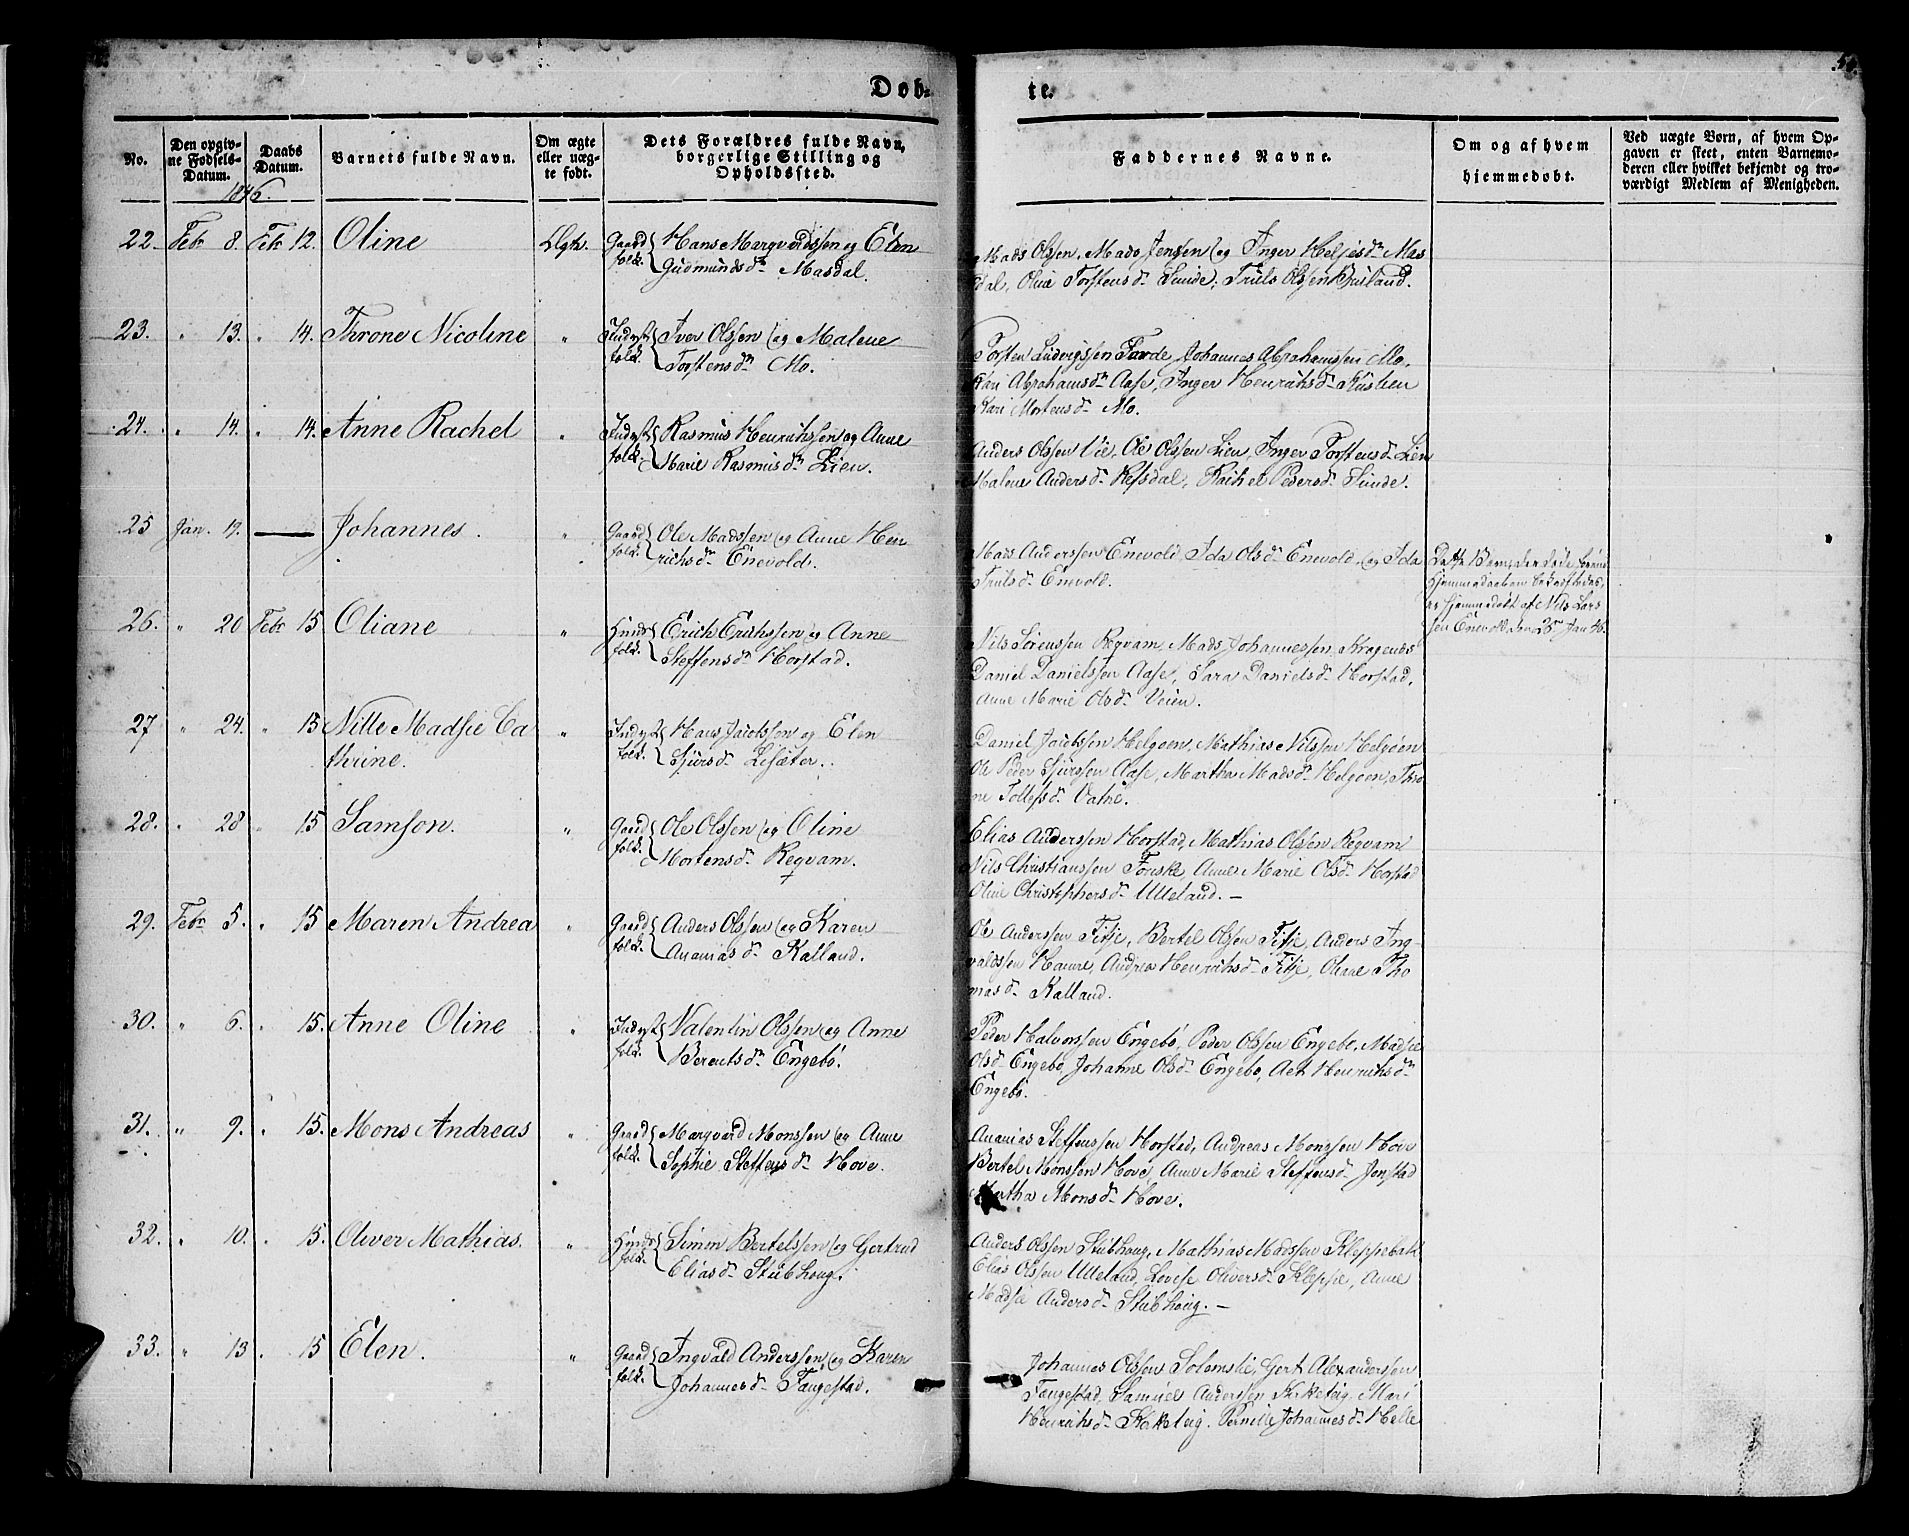 Døb-
te.
No.
Den opgiv-
ne Fødsels-
Datum.
Daabs
Datum.
1846.
Barnets fulde Navn.
Om ægte
eller uæg-
te født.
Dets Forældres fulde Navn,
borgerlige Stilling og
Opholdssted.
Faddernes Navne.
Om og af hvem
hjemmedøbt.
Ved uægte Børn, af hvem Op-
gaven er skeet, enten Barnemo-
deren eller hvilket bekjendt og tro-
værdigt Medlem af Menigheden.
22. Feb 8. Feb 12. Oline Gaard Hans Marqvardssen og Elen
folk. Gudmundsdr Masdal.
Mads Olssen, Mads Jenssen og Inger Heljesdr Mas
dal, Olina Torstensdr Sunde, Truls Olssen
23. " 13. " 14. Throne Nicoline " Indst Iver Olssen og Malene
folk. Torstensdr Mo.
Torsten Ludvigssen Førde, Johannes Abrahamssen Mo,
Kari Abrahamsdr Aase, Inger Henrichsdr
Kari Mortensdr Mo.
24. " 14. " 14. Anne Rachel " Indst Rasmus Henrichssen og Anne
folk. Marie Rasmusdr Lien.
Anders Olssen Vie, Ole Olssen Lien, Inger Torstensdr Lien
Malene Andersdr Refsdal, Rachel Pedersdr Sunde.
25 Jan. 19. — Johannes. " Gaard Ole Madssen og Anne Hen
folk. richsdr Enevold.
Mads Anderssen Enevold, Ida Olsdr Enevold, og Ida
Trulsdr Enevold.
Dette Barn, der døde førend
Hjemmedaaben bekræftedes,
er hjemmedøbt af Nils Lars
sen Enevold, den 25 Jan 46.
26. " 20 Feb 15 Oliane " Huus Erich Erichssen og Anne
folk. Steffensdr Horstad.
Nils Sørenssen Reqvam, Mads Johannessen
Daniel Danielssen Aase, Sara Danielsdr Horstad,
Anne Marie Olsdr Veien.
27 " 24. " 15 Nille Madsie Ca " Indst Hans Jacobssen og Elen
thrine. folk. Sjursdr Lisæter.
Daniel Jacobssen Helgøen, Mathias Nilssen Helgøen
Ole Peder Sjurssen Aase, Martha Madsdr Helgøen, Thro
ne Tollefsdr Vatne.
28. " 28 " 15 Samson. " Gaard Ole Olssen og Oline
folk. Mortensdr Reqvam.
Elias Anderssen Horstad, Mathias Olssen Reqvam
Nils Christianssen Fonske, Anne Marie Olsdr Horstad
Oline Christophersdr Ulleland. —
29. Feb 5. " 15 Maren Andrea " Gaard Anders Olssen og Karen
folk. Ananiasdr Kalland.
Ole Anderssen Fitje, Bertel Olssen Fitje, Anders Ing-
valdssen Havre, Andrea Henrichsdr Fitje, Oliane Tho
masdr Kalland.
30. " 6. " 15. Anne Oline " Indst Valentin Olssen og Anne
folk. Berentsdr Engebø.
Peder Halvorssen Engebø, Peder Olssen Engebø, Madsie
Olsdr Engebø, Johanne Olsdr Engebø, Henrichsdr
Engebø.
31. " 9. " 15. Mons Andreas " Gaard Marqvard Monssen og Anne
folk. Sophie Steffensdr Hove.
Ananias Steffenssen Horstad, Andreas Monssen Hove
Bertel Monssen Hove, Anne Marie Steffensdr Jonstad
Martha Monsdr Hove.
32. " 10. " 15. Oliver Mathias. " Huus Simon Bertelssen og Gertrud
folk. Eliasdr Stubhoug.
Anders Olssen Stubhoug, Mathias Madssen Kleppebak
Elias Olssen Ulleland, Lovise Oliversdr Kleppe, Anne
Madsie Andersdr Stubhoug. —
33. " 13 " 15 Elen. " Gaard Ingvald Anderssen og Karen
folk. Johannesdr Tangestad.
Johannes Olssen Solemslie, Gert Alexanderssen
Tangestad, Samuel Anderssen Mari
Henrichsdr Pernille Johannesdr Helle